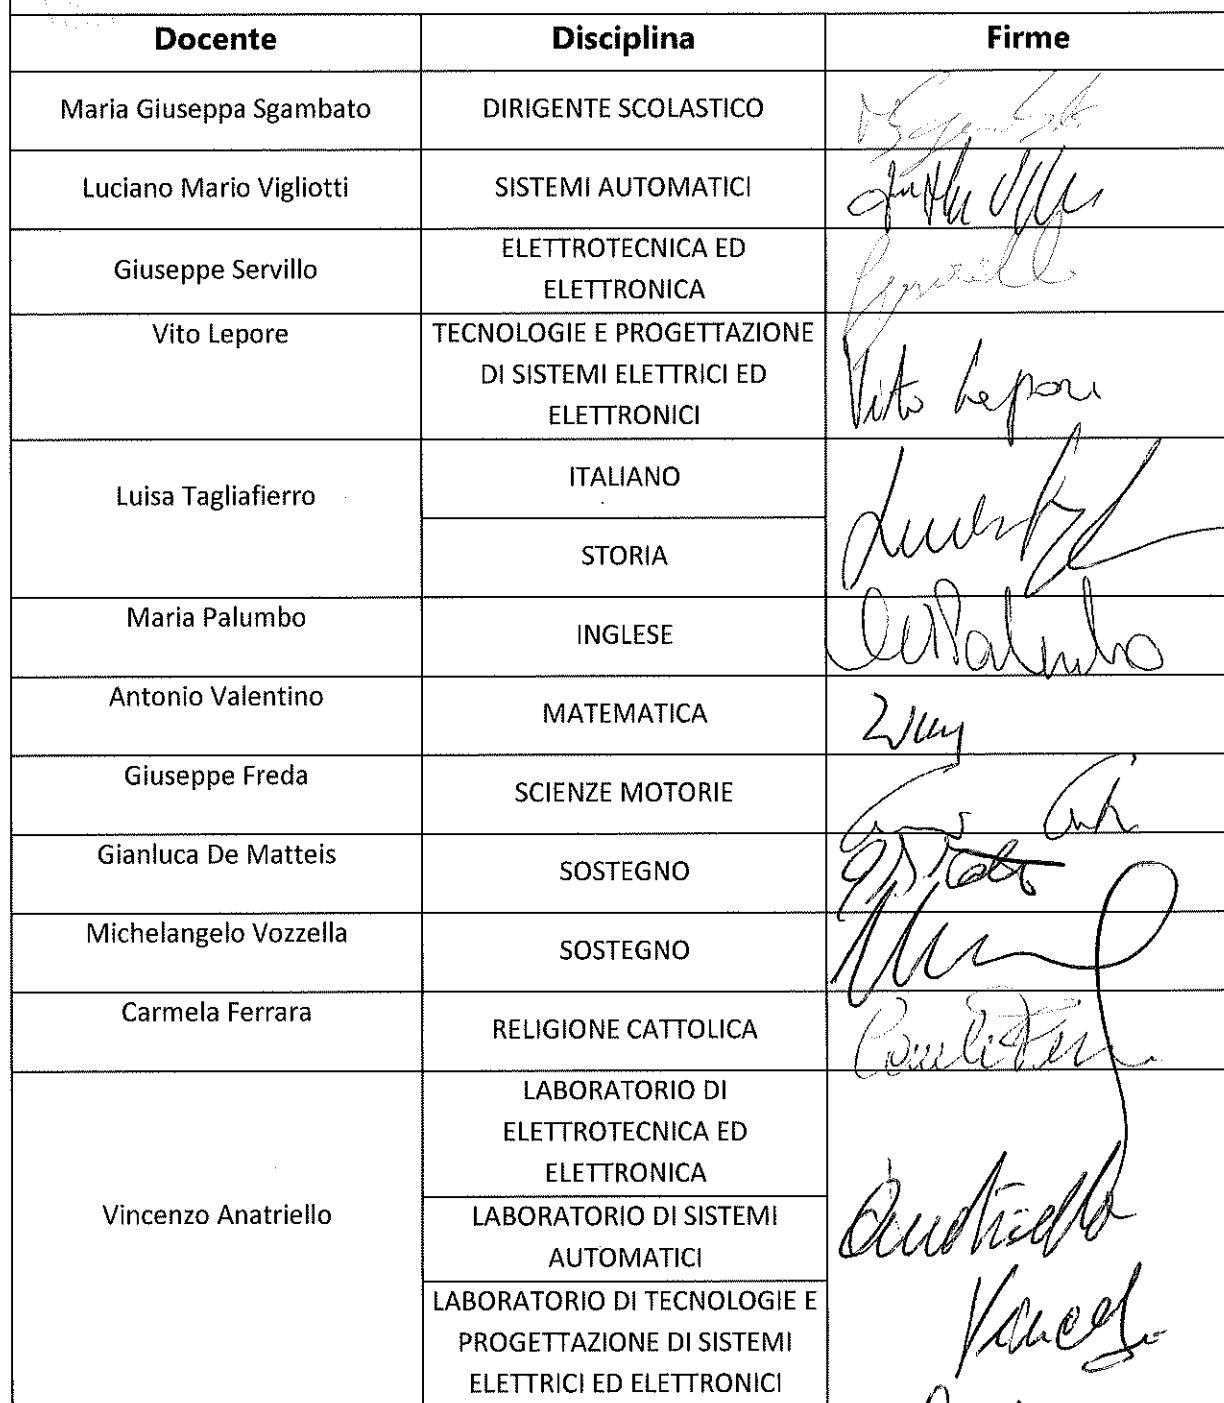 Docente Disciplina Firme
Maria Giuseppa Sgambato DIRIGENTE SCOLASTICO
Luciano Mario Vigliotti SISTEMI AUTOMATICI
Giuseppe Servillo ELETTROTECNICA ED
ELETTRONICA
Vito Lepore TECNOLOGIE E PROGETTAZIONE
DI SISTEMI ELETTRICI ED
ELETTRONICI
Vito Lepore
Luisa Tagliafierro ITALIANO
STORIA
Maria Palumbo INGLESE
Palumbo
Antonio Valentino MATEMATICA
Giuseppe Freda SCIENZE MOTORIE
Gianluca De Matteis SOSTEGNO
Michelangelo Vozzella SOSTEGNO
Carmela Ferrara RELIGIONE CATTOLICA
Vincenzo Anatriello LABORATORIO DI
ELETTROTECNICA ED
ELETTRONICA
LABORATORIO DI SISTEMI
AUTOMATICI
Anatriello
LABORATORIO DI TECNOLOGIE E
PROGETTAZIONE DI SISTEMI
ELETTRICI ED ELETTRONICI